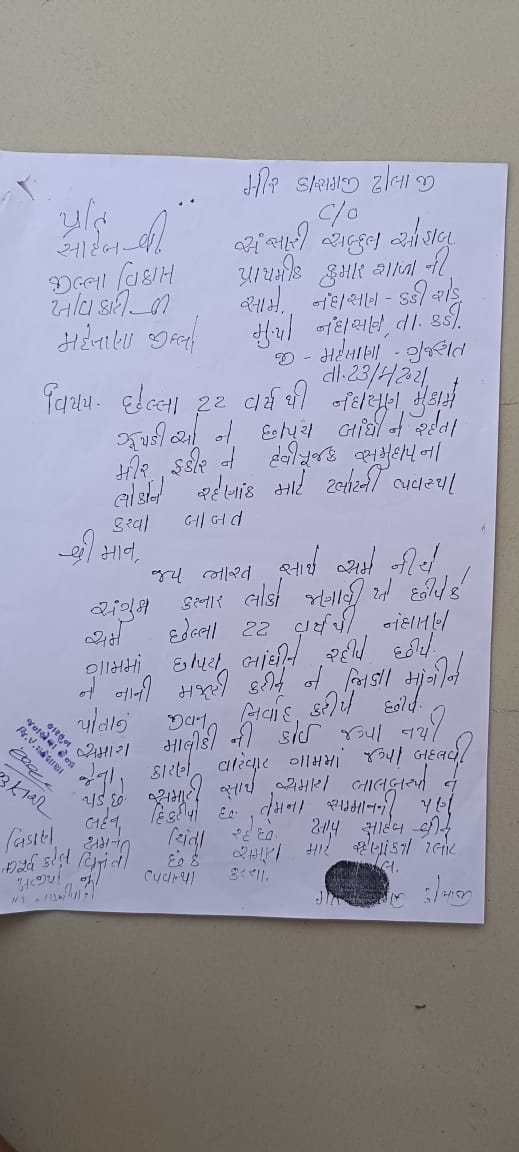 મીર કાસમજી ઢોલાજી
C/O
પ્રતિ
સાહેબ શ્રી.
જીલ્લા વિકાસ
અધિકારી શ્રી
મહેસાણા જીલ્લો
અંસારી અબ્દુલ
પ્રાથમીક કુમાર શાળા ની
સામે, નંદાસણ - કડી રોડ
મુ.પો નંદાસણ, તા. કડી.
જી - મહેસાણા - ગુજરાત
વિષય. છેલ્લા 22 વર્ષ થી નંદાસણ મુકામે
ઝૂંપડીઓ ને છાપરા બાંધી ને રહેતા
મીર ફકીર ને દેવીપૂજક સમુદાયના
લોકોને રહેણાંક માટે પ્લોટની વ્યવસ્થા
કરવા બાબત
શ્રી માન,
જય ભારત સાથે અમે નીચે
અંગુઠા કરનાર લોકો જણાવી એ છીએ કે
અમે છેલ્લા 22 વર્ષ થી નંદાસણ
ગામમાં છાપરા બાંધીને રહીએ છીએ.
ને નાની મજૂરી કરીને ને ભિક્ષા માંગીને
પોતાનું જીવન નિર્વાહ કરીએ છીએ.
અમારા માલીકી ની કોઈ જગ્યા નથી
જેના કારણે વારંવાર ગામમાં જગ્યા બદલવી
પડે છે. અમારી સાથે અમારા બાલબચ્ચા ને
બહેન દિકરીયો છે. તેમના સમ્માનની પણ
અમને ચિંતા રહે છે. આપ સાહેબ શ્રીને
વિનંતી છે કે અમારા માટે રહેણાંકના પ્લોટ
ની વ્યવસ્થા કરશો.
લિ.